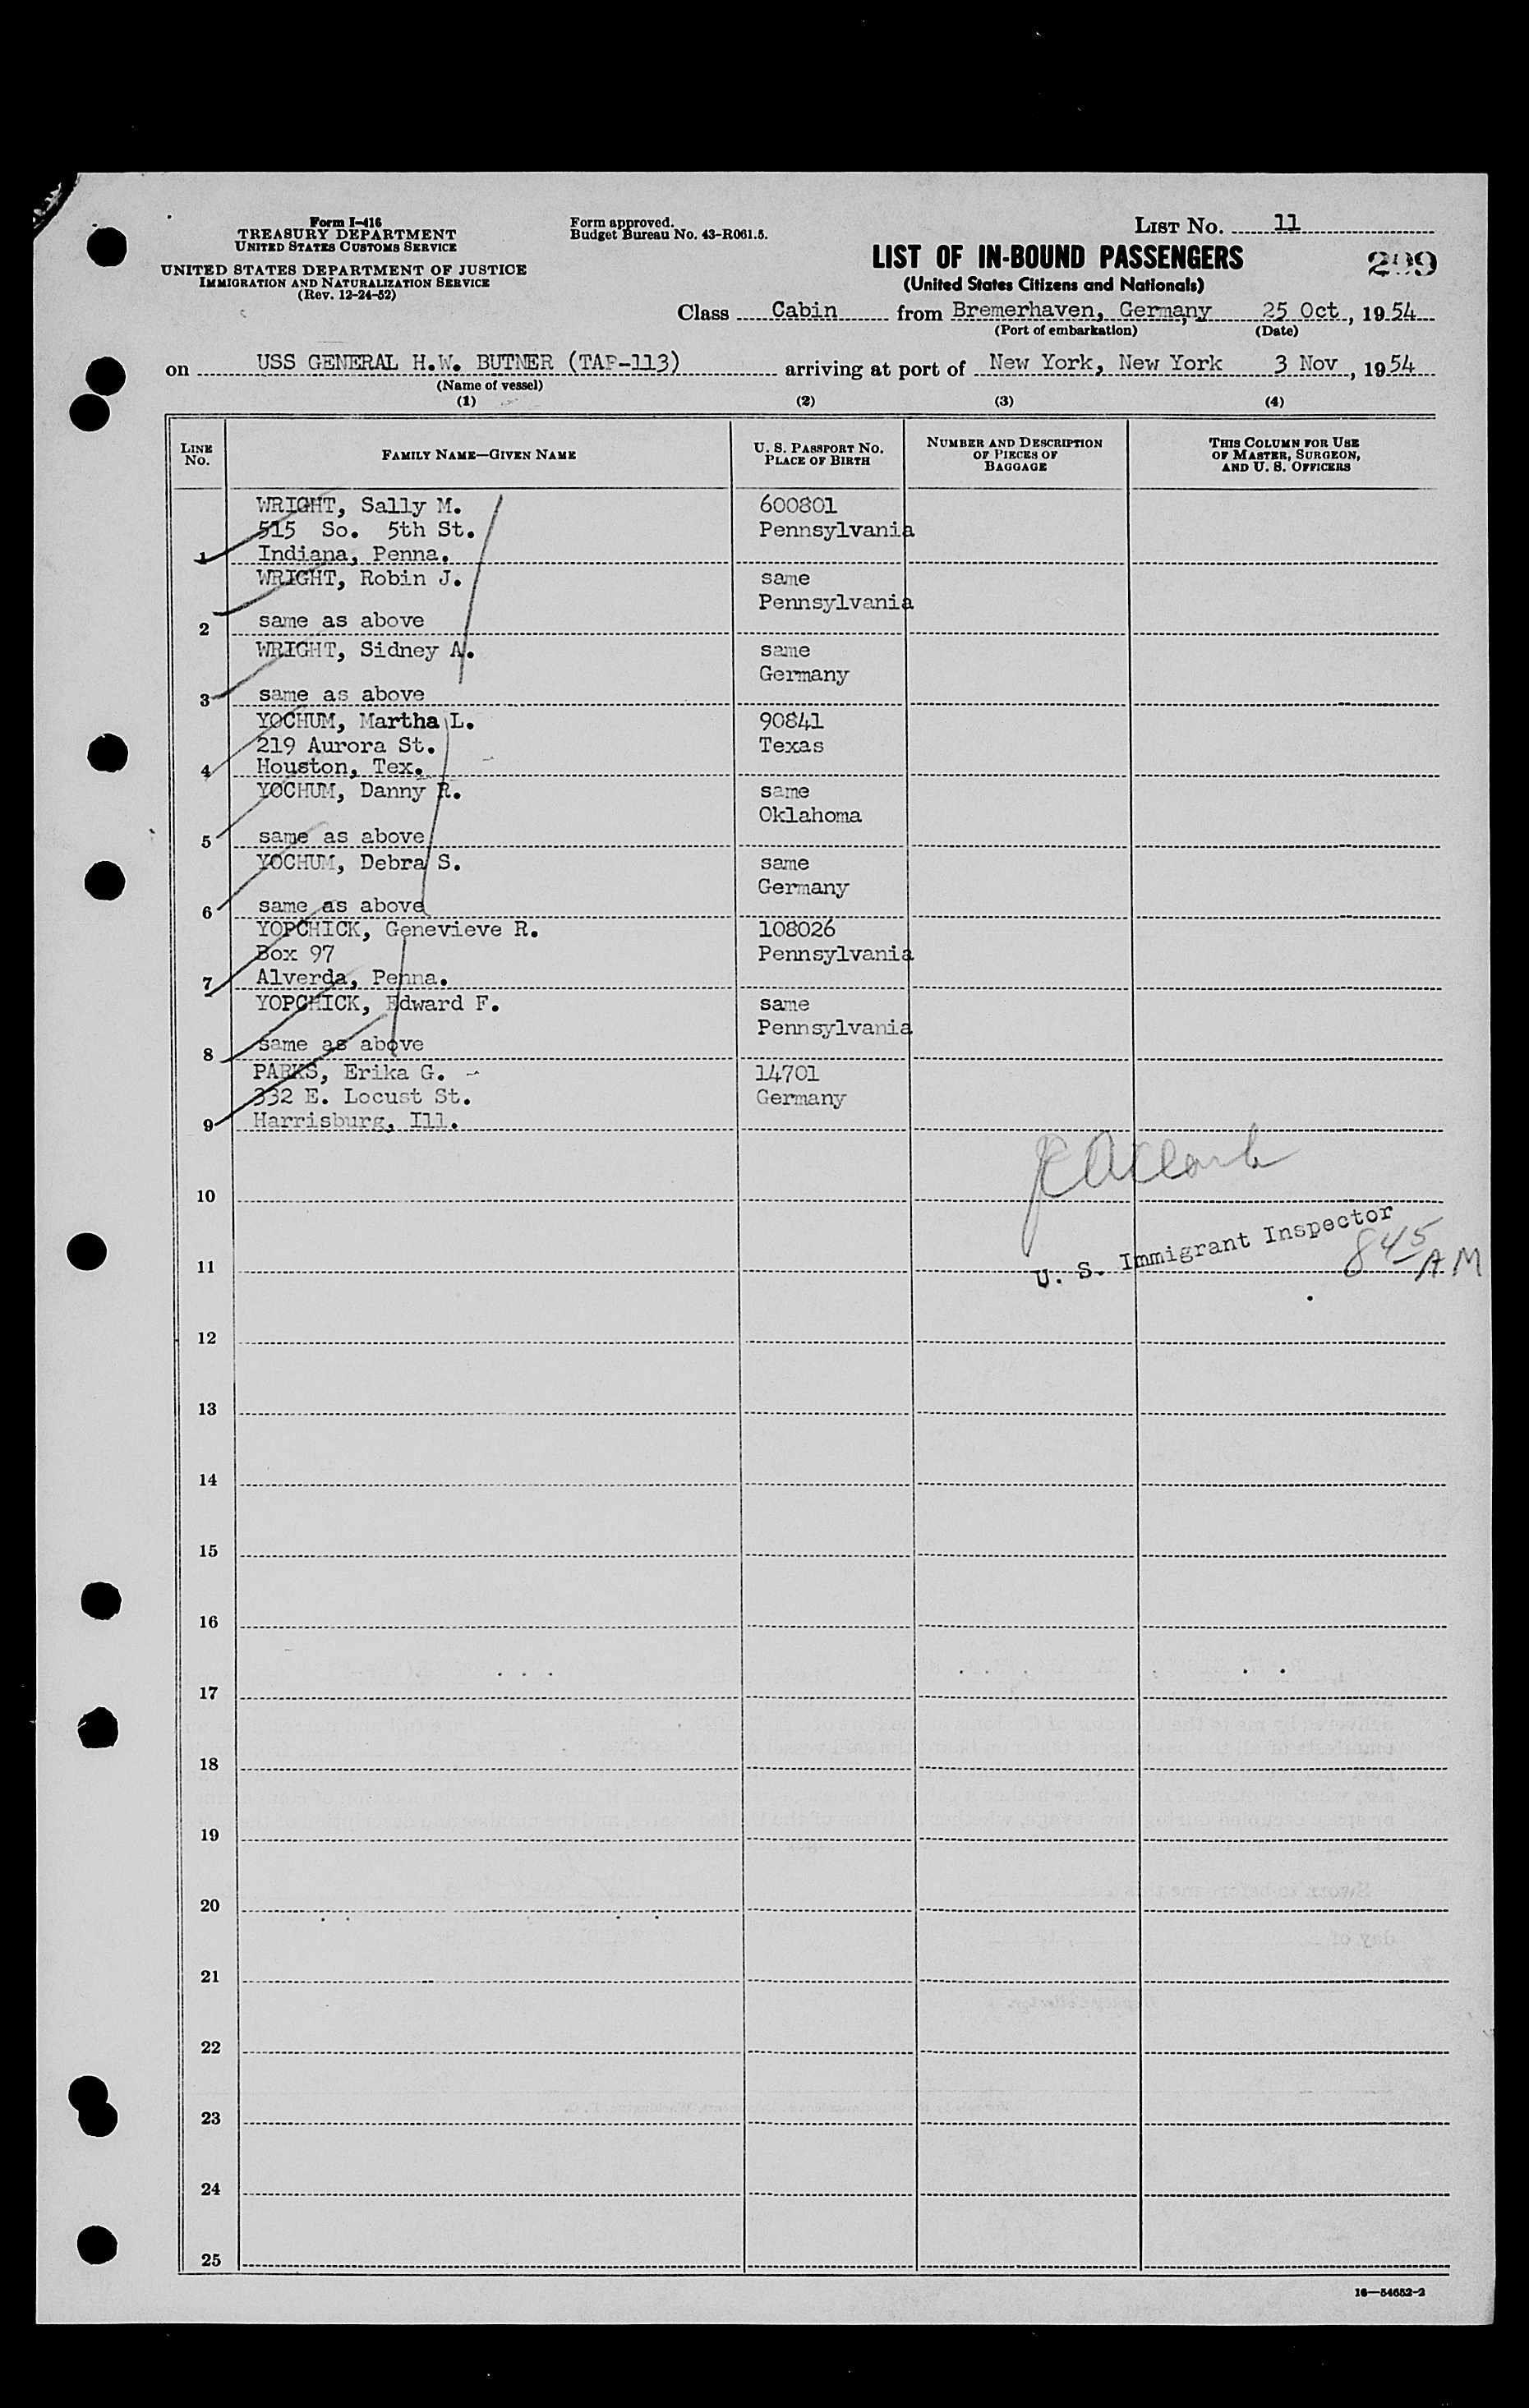 Form I-416
TREASURY DEPARTMENT
UNITED STATES CUSTOMS SERVICE
UNITED STATES DEPARTMENT OF JUSTICE
IMMIGRATION AND NATURALIZATION SERVICE
(Rev. 12-24-52)
Form approved.
Budget Bureau No. 43-R061.5.
LIST No. 11
LIST OF IN-BOUND PASSENGERS
299
(United States Citizens and Nationals)
Class Cabin from Bremerhaven, Germany 25 Oct, 1954
(Port of embarkation) (Date)
on USS GENERAL H.W. BUTNER (TAP-113) arriving at port of New York, New York 3 Nov, 1954
(Name of vessel)
(1) (2) (3) (4)
LINE No. FAMILY NAME—GIVEN NAME U. S. PASSPORT NO. PLACE OF BIRTH NUMBER AND DESCRIPTION OF PIECES OF BAGGAGE THIS COLUMN FOR USE OF MASTER, SURGEON, AND U. S. OFFICERS
WRIGHT, Sally M. 600801
515 So. 5th St. Pennsylvania
1 Indiana, Penna.
WRIGHT, Robin J. same
Pennsylvania
2 same as above
WRIGHT, Sidney A. same
Germany
3 same as above
YOCHUM, Martha L. 90841
219 Aurora St. Texas
4 Houston, Tex.
YOCHUM, Danny R. same
Oklahoma
5 same as above
YOCHUM, Debra S. same
Germany
6 same as above
YOPCHICK, Genevieve R. 108026
Box 97 Pennsylvania
7 Alverda, Penna.
YOPCHICK, Edward F. same
Pennsylvania
8 same as above
PARKS, Erika G. 14701
332 E. Locust St. Germany
9 Harrisburg, Ill.
10
U. S. Immigrant Inspector
845 AM
11
12
13
14
15
16
17
18
19
20
21
22
23
24
25
16—54652-2